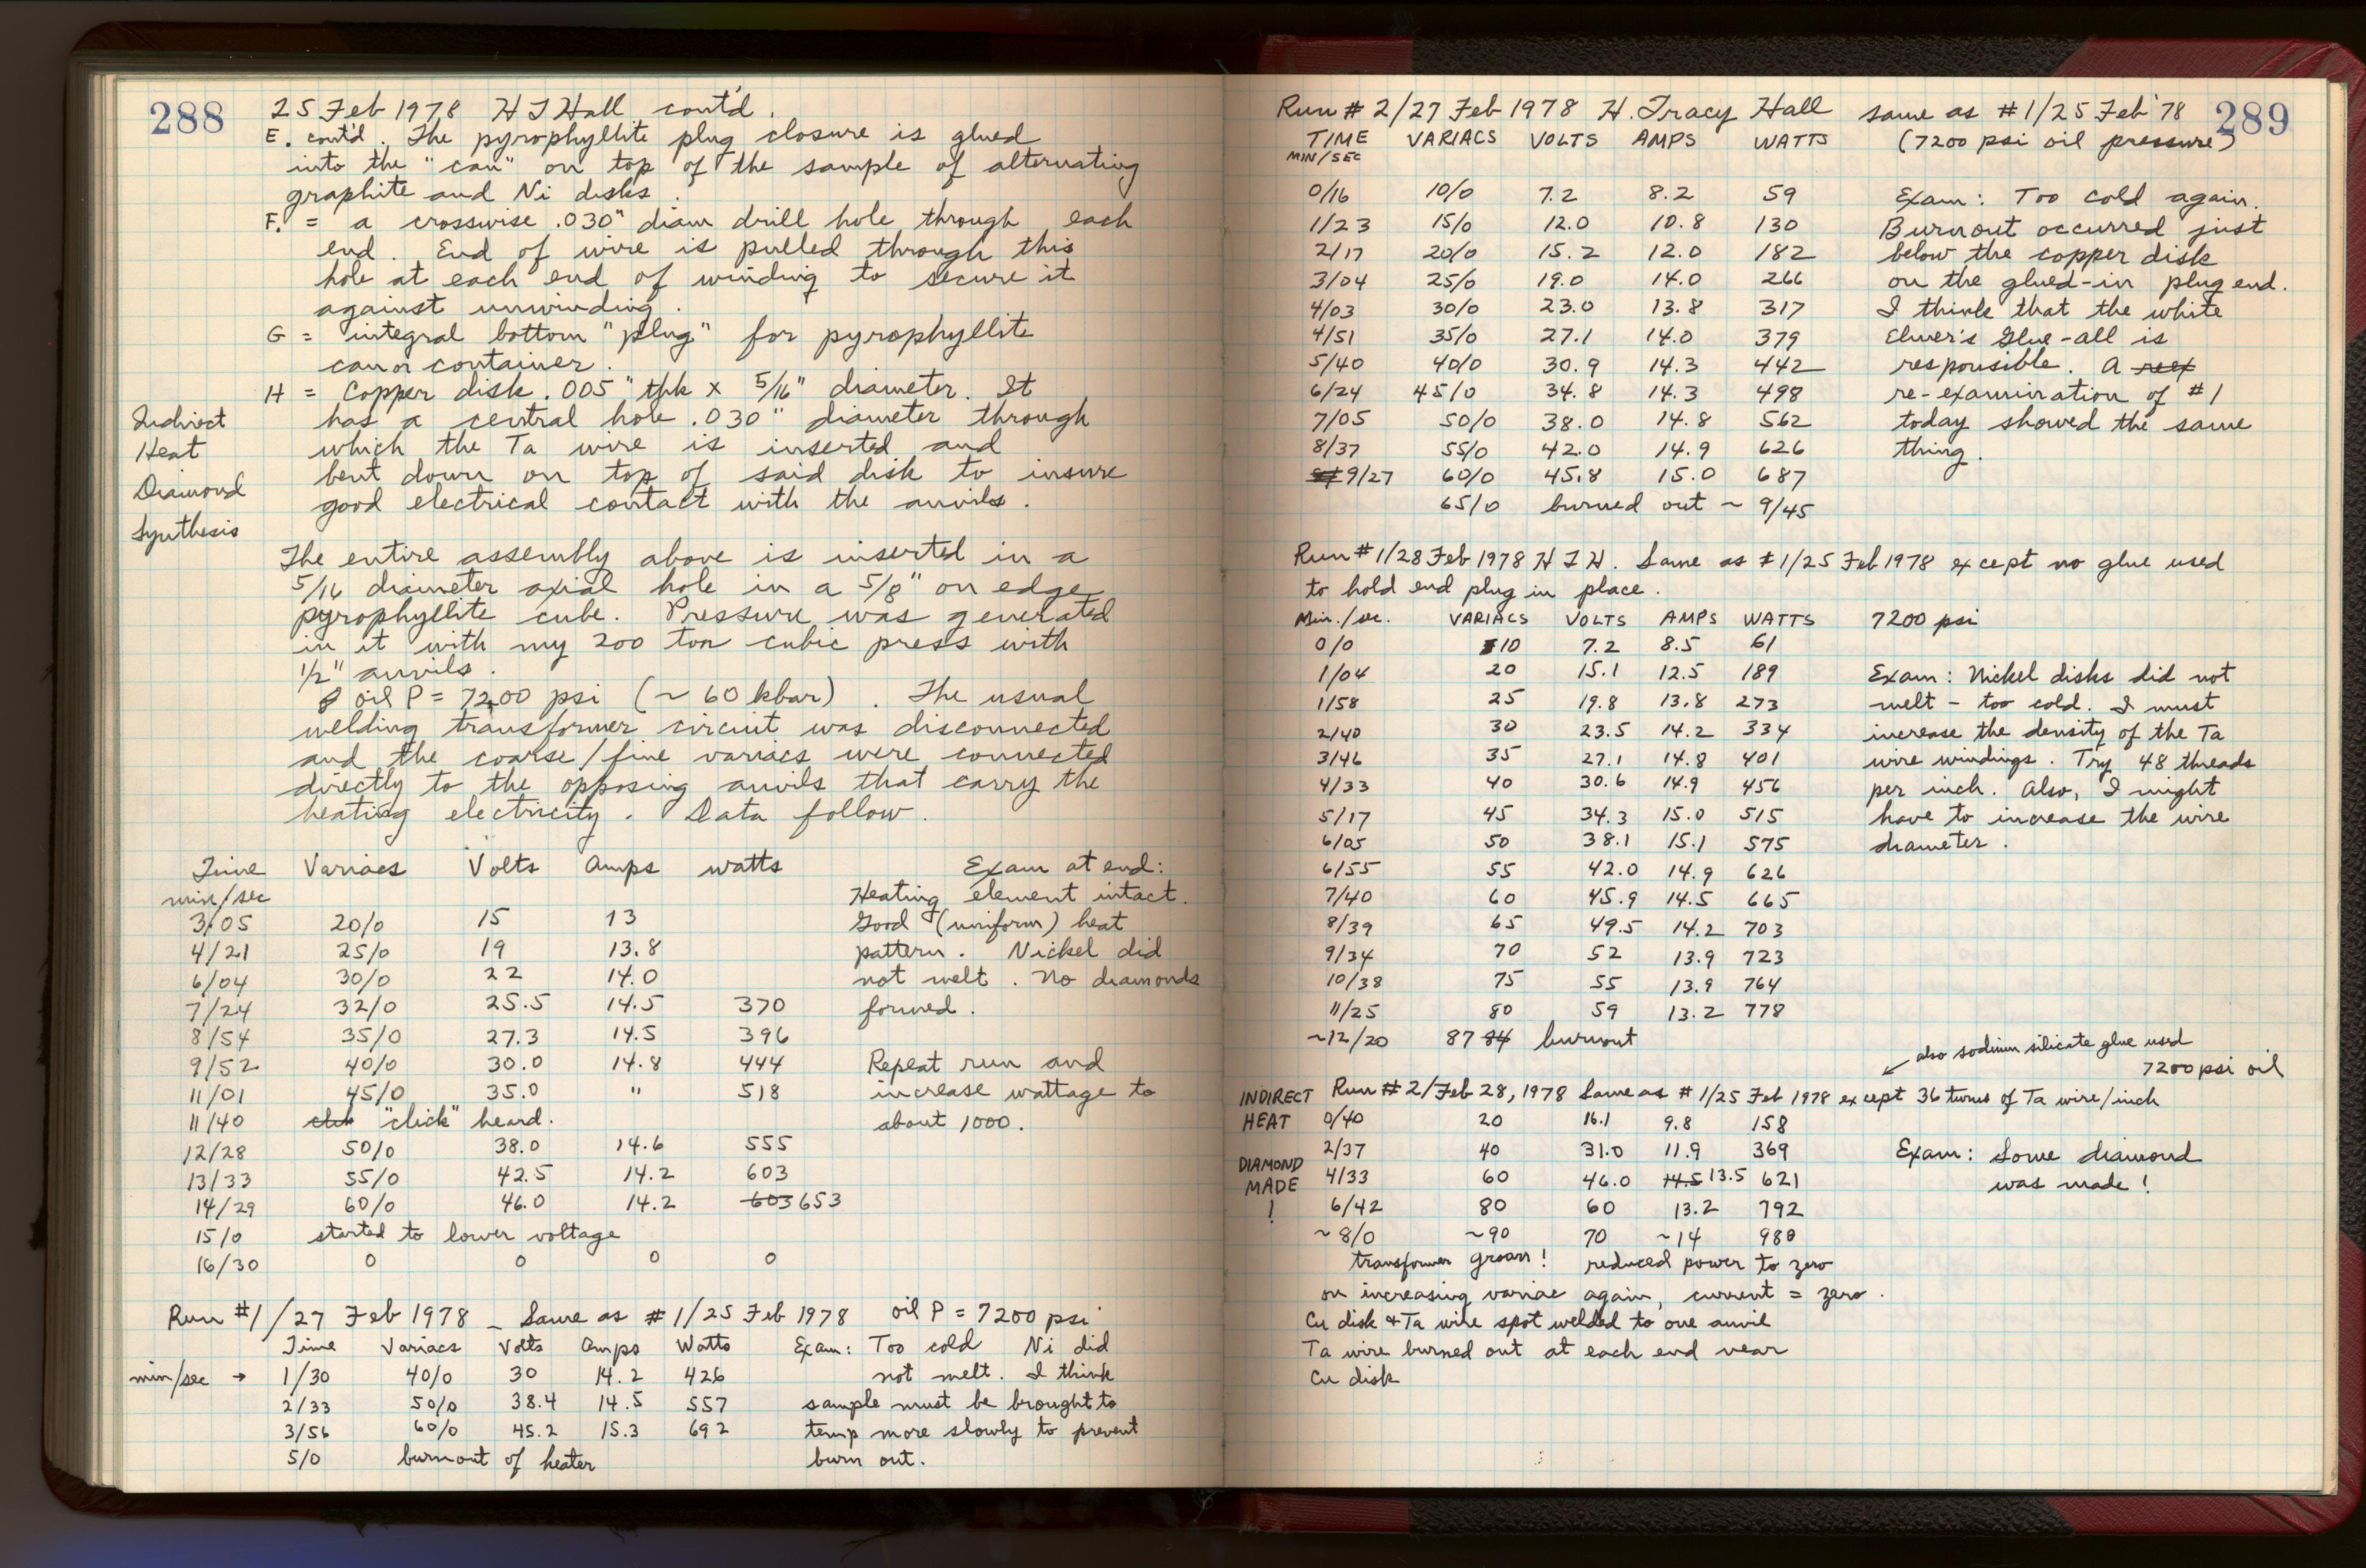 288
25 Feb 1978 H T Hall cont'd.
E. cont'd. The pyrophyllite plug closure is glued
into the "can" on top of the sample of alternating
graphite and Ni disks.
F. = a crosswise .030" diam drill hole through each
end. End of wire is pulled through this
hole at each end of winding to secure it
against unwinding.
G = integral bottom "plug" for pyrophyllite
can or container.
H = Copper disk .005" thk x 5/16" diameter. It
has a central hole .030" diameter through
which the Ta wire is inserted and
bent down on top of said disk to insure
good electrical contact with the anvils.
Indirect
Heat
Diamond
Synthesis
The entire assembly above is inserted in a
5/16 diameter axial hole in a 5/8" on edge
pyrophyllite cube. Pressure was generated
in it with my 200 ton cubic press with
1/2" anvils.
oil P = 7200 psi (~ 60 kbar). The usual
welding transformer circuit was disconnected
and the coarse/fine variacs were connected
directly to the opposing anvils that carry the
heating electricity. Data follow.
Time Variacs Volts Amps watts Exam at end:
min/sec Heating element intact.
3/05 20/0 15 13 Good (uniform) heat
4/21 25/0 19 13.8 pattern. Nickel did
6/04 30/0 22 14.0 not melt. No diamonds
7/24 32/0 25.5 14.5 370 formed.
8/54 35/0 27.3 14.5 396
9/52 40/0 30.0 14.8 444 Repeat run and
11/01 45/0 35.0 " 518 increase wattage to
11/40 "click" heard. about 1000.
12/28 50/0 38.0 14.6 555
13/33 55/0 42.5 14.2 603
14/29 60/0 46.0 14.2 603 653
15/0 started to lower voltage
16/30 0 0 0 0
Run #1/27 Feb 1978 _ Same as #1/25 Feb 1978 oil P = 7200 psi
Time Variacs Volts Amps Watts Exam: Too cold Ni did
min/sec → 1/30 40/0 30 14.2 426 not melt. I think
2/33 50/0 38.4 14.5 557 sample must be brought to
3/56 60/0 45.2 15.3 692 temp more slowly to prevent
5/0 burnout of heater burn out.
289
Run # 2/27 Feb 1978 H. Tracy Hall same as #1/25 Feb '78
TIME VARIACS VOLTS AMPS WATTS (7200 psi oil pressure)
MIN/SEC
0/16 10/0 7.2 8.2 59 Exam: Too cold again.
1/23 15/0 12.0 10.8 130 Burnout occurred just
2/17 20/0 15.2 12.0 182 below the copper disk
3/04 25/0 19.0 14.0 266 on the glued-in plug end.
4/03 30/0 23.0 13.8 317 I think that the white
4/51 35/0 27.1 14.0 379 Elmer's Glue-all is
5/40 40/0 30.9 14.3 442 responsible. A reex
6/24 45/0 34.8 14.3 498 re-examination of #1
7/05 50/0 38.0 14.8 562 today showed the same
8/37 55/0 42.0 14.9 626 thing.
9/27 60/0 45.8 15.0 687
65/0 burned out ~ 9/45
Run #1/28 Feb 1978 H T H. Same as #1/25 Feb 1978 except no glue used
to hold end plug in place.
Min./sec. VARIACS VOLTS AMPS WATTS 7200 psi
0/0 10 7.2 8.5 61
1/04 20 15.1 12.5 189 Exam: Nickel disks did not
1/58 25 19.8 13.8 273 melt - too cold. I must
2/40 30 23.5 14.2 334 increase the density of the Ta
3/46 35 27.1 14.8 401 wire windings. Try 48 threads
4/33 40 30.6 14.9 456 per inch. Also, I might
5/17 45 34.3 15.0 515 have to increase the wire
6/05 50 38.1 15.1 575 diameter.
6/55 55 42.0 14.9 626
7/40 60 45.9 14.5 665
8/39 65 49.5 14.2 703
9/34 70 52 13.9 723
10/38 75 55 13.9 764
11/25 80 59 13.2 778
~12/20 87 84 burnout
also sodium silicate glue used
7200 psi oil
INDIRECT
HEAT
DIAMOND
MADE
!
Run # 2/Feb 28, 1978 Same as #1/25 Feb 1978 except 36 turns of Ta wire/inch
0/40 20 16.1 9.8 158
2/37 40 31.0 11.9 369 Exam: Some diamond
4/33 60 46.0 14.5 13.5 621 was made!
6/42 80 60 13.2 792
~8/0 ~90 70 ~14 980
transformer groan! reduced power to zero
on increasing variac again, current = zero.
Cu disk & Ta wire spot welded to one anvil
Ta wire burned out at each end near
Cu disk